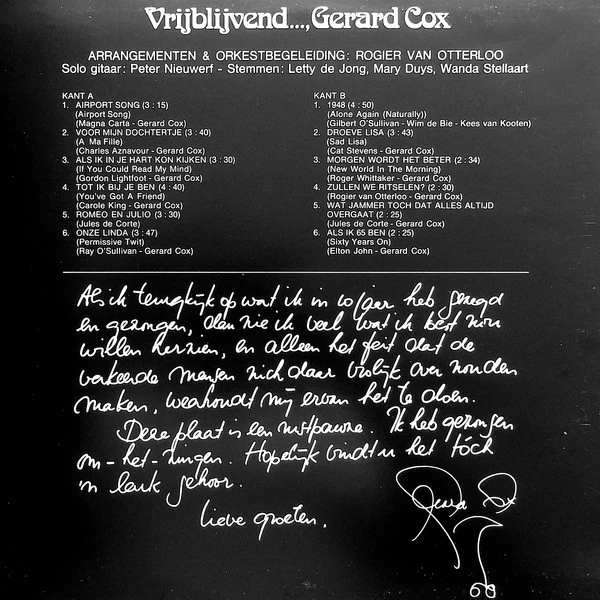 Vrijblijvend..., Gerard Cox
ARRANGEMENTEN & ORKESTBEGELEIDING: ROGIER VAN OTTERLOO
Solo gitaar: Peter Nieuwerf - Stemmen: Letty de Jong, Mary Duys, Wanda Stellaart
KANT A
1. AIRPORT SONG (3 : 15)
(Airport Song)
(Magna Carta - Gerard Cox)
2. VOOR MIJN DOCHTERTJE (3 : 40)
(A Ma Fille)
(Charles Aznavour - Gerard Cox)
3. ALS IK IN JE HART KON KIJKEN (3 : 30)
(If You Could Read My Mind)
(Gordon Lightfoot - Gerard Cox)
4. TOT IK BIJ JE BEN (4 : 40)
(You've Got A Friend)
(Carole King - Gerard Cox)
5. ROMEO EN JULIO (3 : 30)
(Jules de Corte)
6. ONZE LINDA (3 : 47)
(Permissive Twit)
(Ray O'Sullivan - Gerard Cox)
KANT B
1. 1948 (4 : 50)
(Alone Again (Naturally))
(Gilbert O'Sullivan - Wim de Bie - Kees van Kooten)
2. DROEVE LISA (3 : 43)
(Sad Lisa)
(Cat Stevens - Gerard Cox)
3. MORGEN WORDT HET BETER (2 : 34)
(New World In The Morning)
(Roger Whittaker - Gerard Cox)
4. ZULLEN WE RITSELEN? (2 : 30)
(Rogier van Otterloo - Gerard Cox)
5. WAT JAMMER TOCH DAT ALLES ALTIJD
OVERGAAT (2 : 25)
(Jules de Corte - Gerard Cox)
6. ALS IK 65 BEN (2 : 25)
(Sixty Years On)
(Elton John - Gerard Cox)
Als ik terugkijk op wat ik in 10 jaar heb gezegd
en gezongen, dan zie ik veel wat ik best zou
willen herzien, en alleen het feit dat de
verkeerde mensen zich daar vrolijk over zouden
maken, weerhoudt mij ervan het te doen.
Deze plaat is een rustpauze. Ik heb gezongen
om-het-zingen. Hopelijk vindt u het tóch
'n leuk gehoor.
Lieve groeten.
Gerard Cox